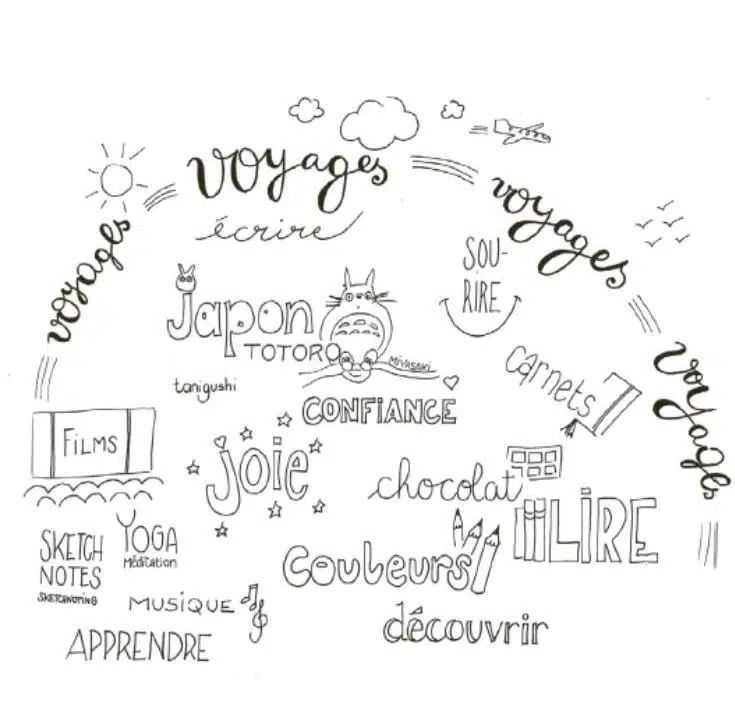 voyages
voyages
voyages
voyages
écrire
SOU-
RIRE
Japon
TOTORO
MIYASAKI
tanigushi
carnets
CONFIANCE
FILMS
joie
chocolat
LIRE
SKETCH
NOTES
SKETCHNOTING
YOGA
Méditation
Couleurs
MUSIQUE
découvrir
APPRENDRE